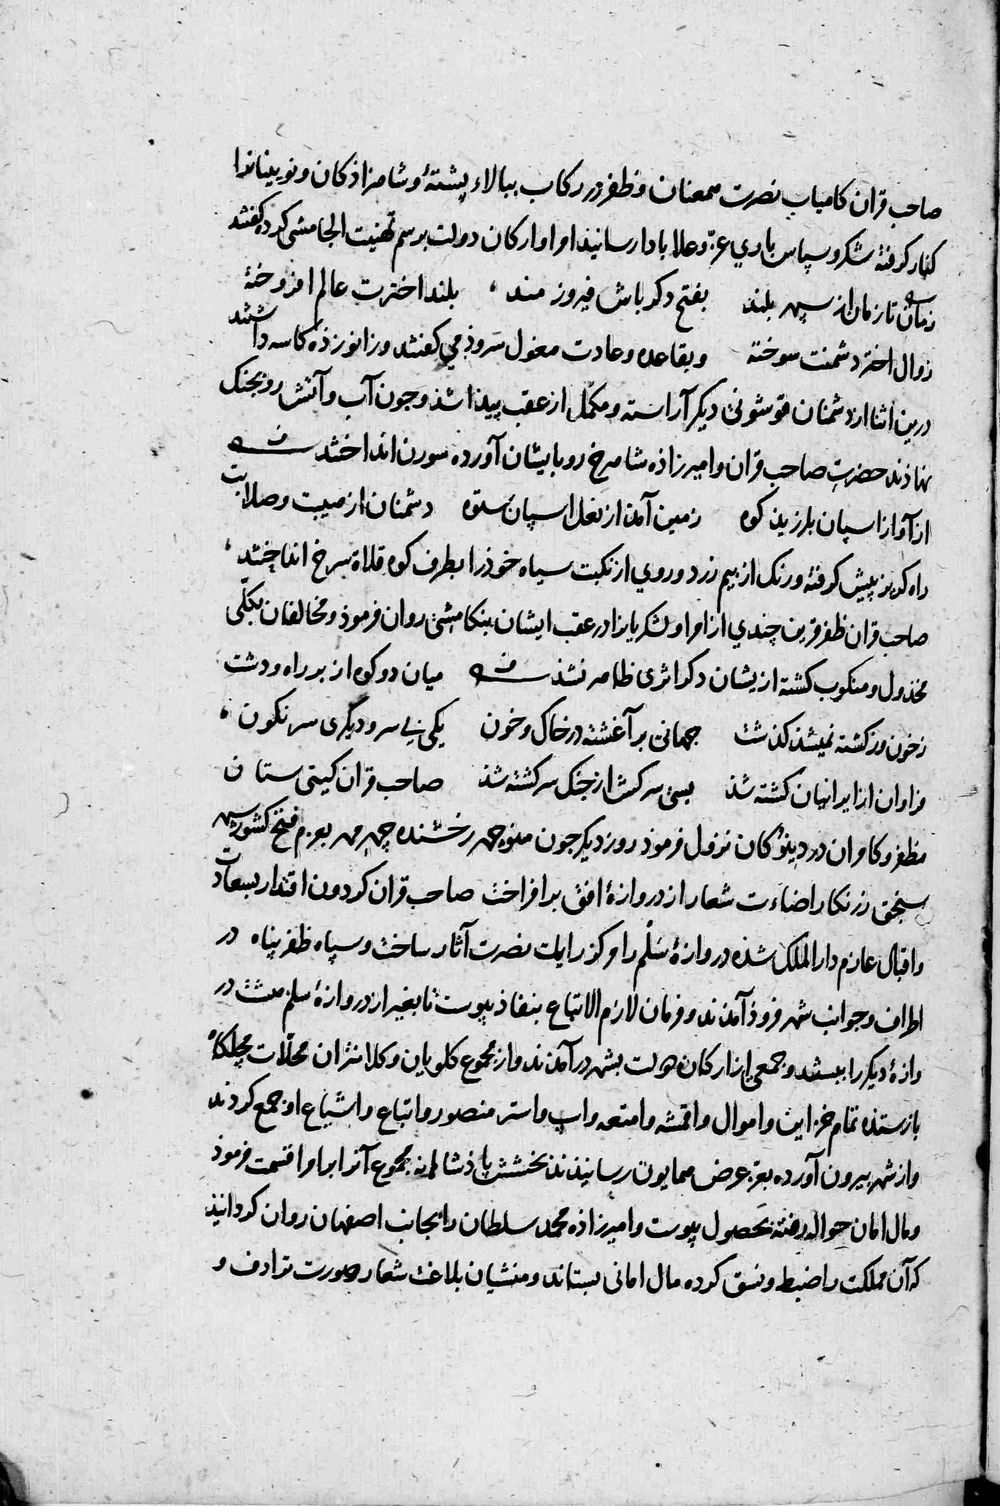 صاحب قران کامیاب نصرت همعنان و ظفر در رکاب ببالاء پشتهٔ و شاهزاذکان و نویینانرا
کنار کرفتهٔ شکر و سپاس باری عزّ و علا بادا رسانیذ امرا و ارکان دولت برسم تهنیت الجامشی کرده کفتند
زمان تا زمان از سپهر بلند بفتح دکر باش فیروز مند بلند اخترت عالم افروخته
زوال اختر دشمنت سوخته و بقاعده و عادت مغول سرود می کفتند و زانو زذه کاسه داشتند
درین اثنا از دشمنان قوشونی دیکر آراسته و مکمل از عقب پیذا شذ و چون آب و آتش رو بجنک
نهاذند حضرت صاحب قران و امیرزاذه شاهرخ رو بایشان آورده سورن انداختند
از آواز اسپان بلرزیذ کوه زمین آمذ از نعل اسپان ستوه دشمنان از هیبت و صلابت
راه کریز پیش کرفتهٔ و رنک از بیم زرد و روی از نکبت سیاه خوذ را بطرف کوه قلاة سرخ انداختند
صاحب قران ظفر قرین چندی از امرا و لشکریانرا در عقب ایشان بتکامشی روان فرموذ و مخالفان بکلّی
مخذول و منکوب کشته از یشان دکر اثری ظاهر نشذ میان دو کوه از بر راه و دشت
زخون وز کشته نمیشذ کذشت جهانی بر آغشته در خاک و خون یکی بی سر و دیگری سرنکون
فراوان از ایرانیان کشته شذ بسی سرکش از جنک سرکشته شذ صاحب قران کیتی ستان
مظفر و کامران در دینوکان نزول فرموذ روز دیکر چون منوچهر رخشنده چهر مهر بعزم فتح کشور سپهر
سنجق زرنکار اضاءت شعار از دروازهٔ افق برافراخت صاحب قران کردون اقتدار بسعادت
و اقبال عازم دار الملک شذه دروازهٔ سَلْم را مرکز رایات نصرت آثار ساخت و سپاه ظفر پناه در
اطراف و جوانب شهر فروذ آمذند و فرمان لازم الاتباع بنفاذ پیوست تا بغیر از دروازهٔ سلم هشت در
وازهٔ دیکر را ببستند و جمعی از ارکان دولت بشهر درآمذند و از مجموع کلویان و کلانتران محلات مچلکا
بازستذه تمام خزاین و اموال و اقمشه و امتعه و اسپ و استر منصور و اتباع و اشیاع او جمع کردند
و از شهر بیرون آورده بعز عرض همایون رسانیذند بخشش پاذشاهانه مجموع آنرا بامرا قسمت فرموذ
و مال امان حواله رفته بتحصول پیوست و امیرزاذه محمد سلطان را بجانب اصفهان روان کردانیذ
که آن مملکت را ضبط و نسق کرده مال امانی بستاند و منشیان بلاغت شعار صورت ترادف و